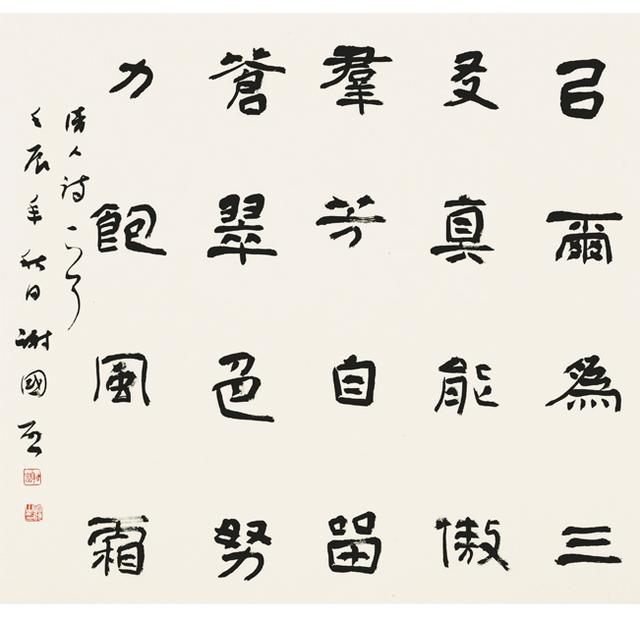 已爾為三
友真能傲
羣芳自留
蒼翠色努
力飽風霜
清人詩一首
壬辰年秋日謝國